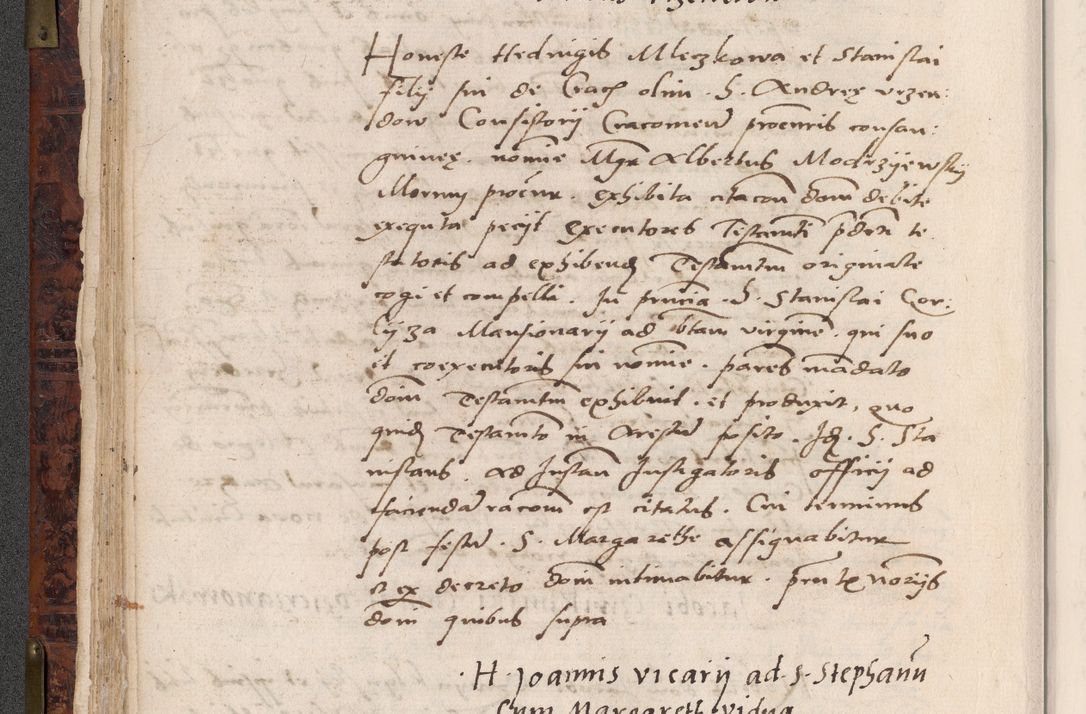 Honeste Hedvigis Mleczkowa et Stanislai
filii sui de Crac olim . S . Andreę vrzen:
dow Consistorij Cracovien procuris consan:
guineę . nomine Mgr Albertus Modrzijewskij
Morum procur . exhibita citacon dom debite
exequta peciit Executores Testamti pdcti te
statoris ad exhibend Testamtm originale
cogi et compelli . In pncia . S . Stanislai Cor:
ij za Mansionarij ad btam virgine . qui suo
et coexecutoris sui nomine . parens mandato
dom Testamtm exhibuit . et produxit, quo
quid Testamto in Arestu posito . Id . S . Sta
nislaus . ad Instan Instigatoris officij ad
faciendam racom est citatus . Cui terminus
post festu . S . Margarethe assignabitur
et ex decreto dom intimabitur . pntx noriis
dom quibus supra
H . Joannis vicarij ad . S . Stephanu
Cum Margareth vidua